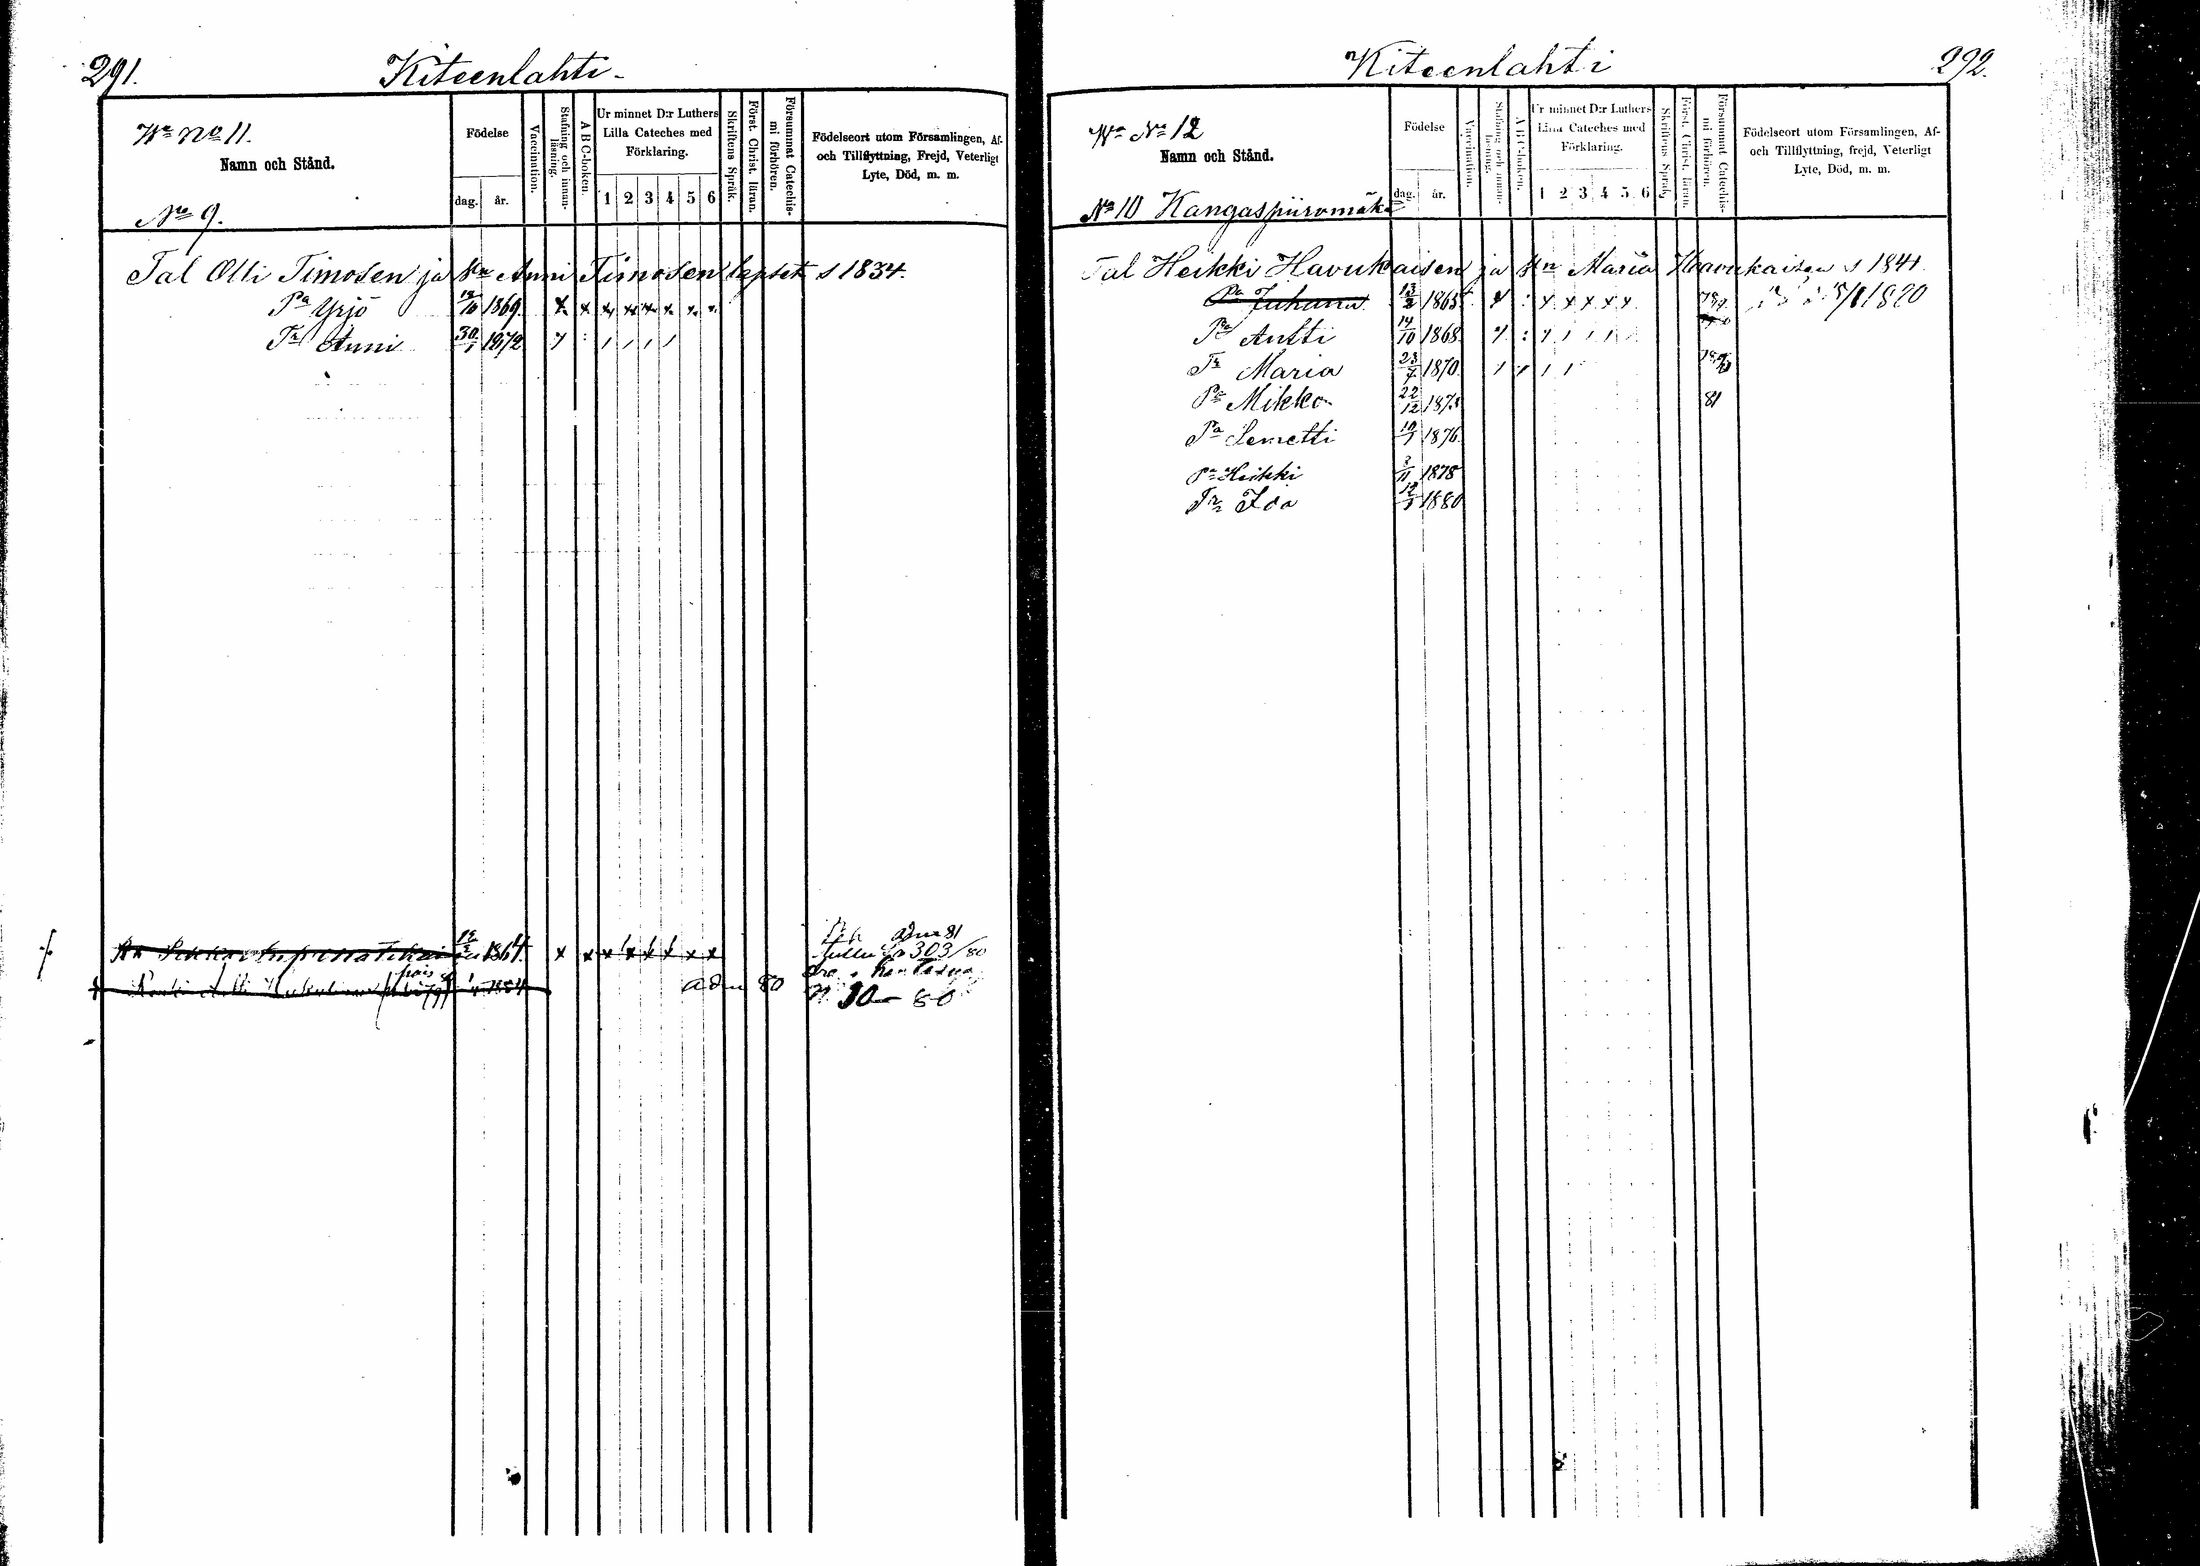 291.
Kiteenlahti
Wn No 11.
Namn och Stånd.
No 9.
Födelse
dag. år.
Vaccination.
Stafning och innan-läsning.
A B C-boken.
Ur minnet D:r Luthers
Lilla Cateches med
Förklaring.
1 2 3 4 5 6
Skriftens Språk.
Först. Christ. läran.
Försummat Catechis-
mi förhören.
Födelseort utom Församlingen, Af-
och Tillflyttning, Frejd, Veterligt
Lyte, Död, m. m.
Tal Olli Timosen ja Vn Anni Timosen lapset s 1834.
Pa Yrjö 12/10 1869. x x x x x x x x
Tr Anni 30/1 1872
1864. x x x x x x x x
adm 81
303/80
adm 80
10 - 80
Kiteenlahti
292.
Wn No 12
Namn och Stånd.
No 10 Kangaspiiromäki
Födelse
dag. år.
Vaccination.
Stafning och innan-läsning.
A B C-boken.
Ur minnet D:r Luthers
Lilla Cateches med
Förklaring.
1 2 3 4 5 6
Skriftens Språk.
Först. Christ. läran.
Försummat Catechis-
mi förhören.
Födelseort utom Församlingen, Af-
och Tillflyttning, frejd, Veterligt
Lyte, Död, m. m.
Tal Heikki Havukaisen ja Vn Maria Haavukaisen s 1841.
Pa Juhana 13/2 1865
Pa Antti 14/10 1868.
Tr Maria 23/7 1870.
Pa Mikko 22/12 187 81
Pa Semetti 1876.
Pa Heikki 1878
Tr Ida 1880